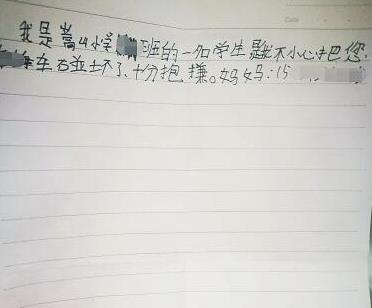 Date
我是嵩山小学 班的一名学生 我不小心把您
车碰坏了、十分抱搛。妈妈:15